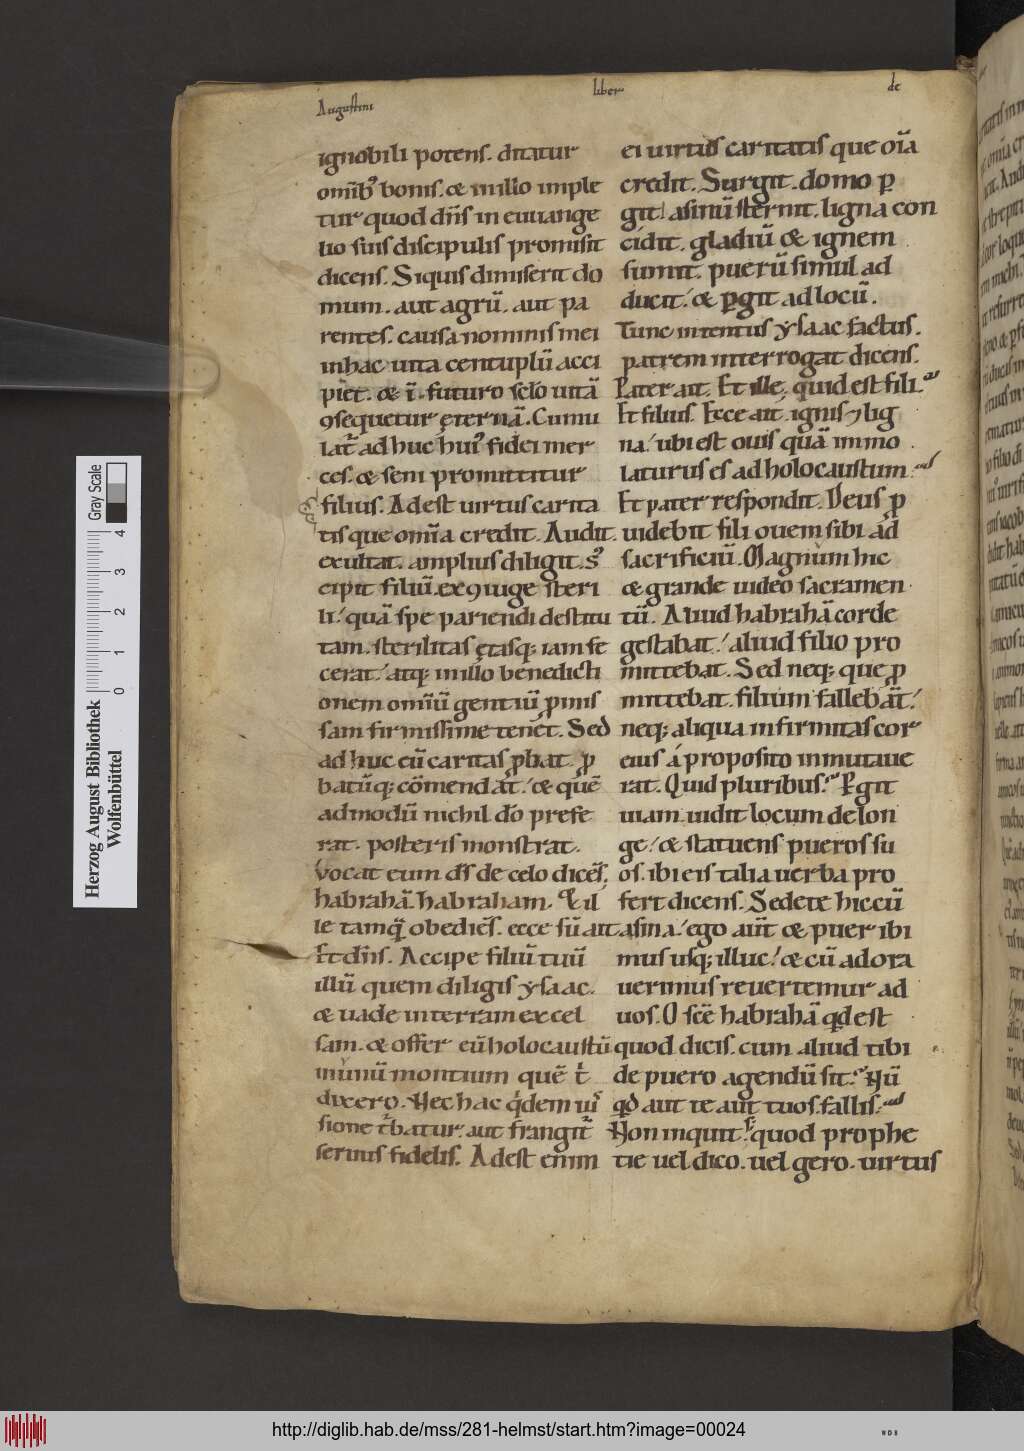 Augustini
liber
de
ignobili potens. ditatur
omīb; bonis. & in illo imple
tur quod dn̄s in euuange
lio suis discipulis promisit
dicens. Siquis dimiserit do
mum. aut agrū. aut pa
rentes. causa nominis mei
in hac uita centuplū acci
piet. & ī futuro sclo uitā
ꝯsequetur ęternā. Cumu
lat̄ ad huc huiꝰ fidei mer
ces. & seni promittitur
filius. Adest uirtus carita
tis que om̄ia credit. Audit.
exultat. amplius diligit. sꝰ
cipit filiū. ex ꝯiuge steri
li. quā spe pariendi destitu
tam. sterilitas ętasq; iam fe
cerat. atq; in illo benedicti
onem omiū gentiū ꝓmis
sam firmissime tenet. Sed
ad huc eū caritas ꝓbat. ꝓ
batūq; cōmendat. & quē
admodū nichil dō prefe
rat. posteris monstrat.
Vocat eum ds̄ de celo dicēs.
habrahā. habraham. Et il
le tamq̄ obediēs. ecce sū ait
Et dn̄s. Accipe filiū tuū
illū quem diligis ysaac.
& uade in terram excel
sam. & offer eū holocaustū
in unū montium quē t̄
dixero. Nec hac q̄dem uī
sione t̄batur. aut frangit̄
seruus fidelis. Adest enim
ei uirtus caritatis que oīa
credit. Surgit. domo ꝑ
git. asinū sternit. ligna con
cidit. gladiū & ignem
sumit. puerū simul ad
ducit. & ꝑgit ad locū.
Tunc intentus ysaac factus.
patrem interrogat dicens.
Pater ait. Et ille, quid est fili.
Et filius. Ecce ait. ignis ⁊ lig
na. ubi est ouis quā immo
laturus es ad holocaustum.
Et pater respondit. Deus ꝓ
uidebit fili ouem sibi ad
sacrificiū. Magnum hic
& grande uideo sacramen
tū. Aliud habrahā corde
gestabat. aliud filio pro
mittebat. Sed neq; que ꝓ
mittebat. filium fallebat.
neq; aliqua infirmitas cor
eius á proposito inmutaue
rat. Quid pluribus. Pergit
uiam. uidit locum de lon
ge. & statuens pueros su
os. ibi eis talia uerba pro
fert dicens. Sedete hic cū
asina. ego aūt & puer ibi
mus usq; illuc. & cū adora
uerimus reuertemur ad
uos. O scē habrahā qđ est
quod dicis. cum aliud tibi
de puero agendū sit. Nū
qđ aut te aut tuos fallis.
Non inquit. quod prophe
tie uel dico. uel gero. uirtus
Herzog August Bibliothek
Wolfenbüttel
Gray Scale
0 1 2 3 4
http://diglib.hab.de/mss/281-helmst/start.htm?image=00024
WDB